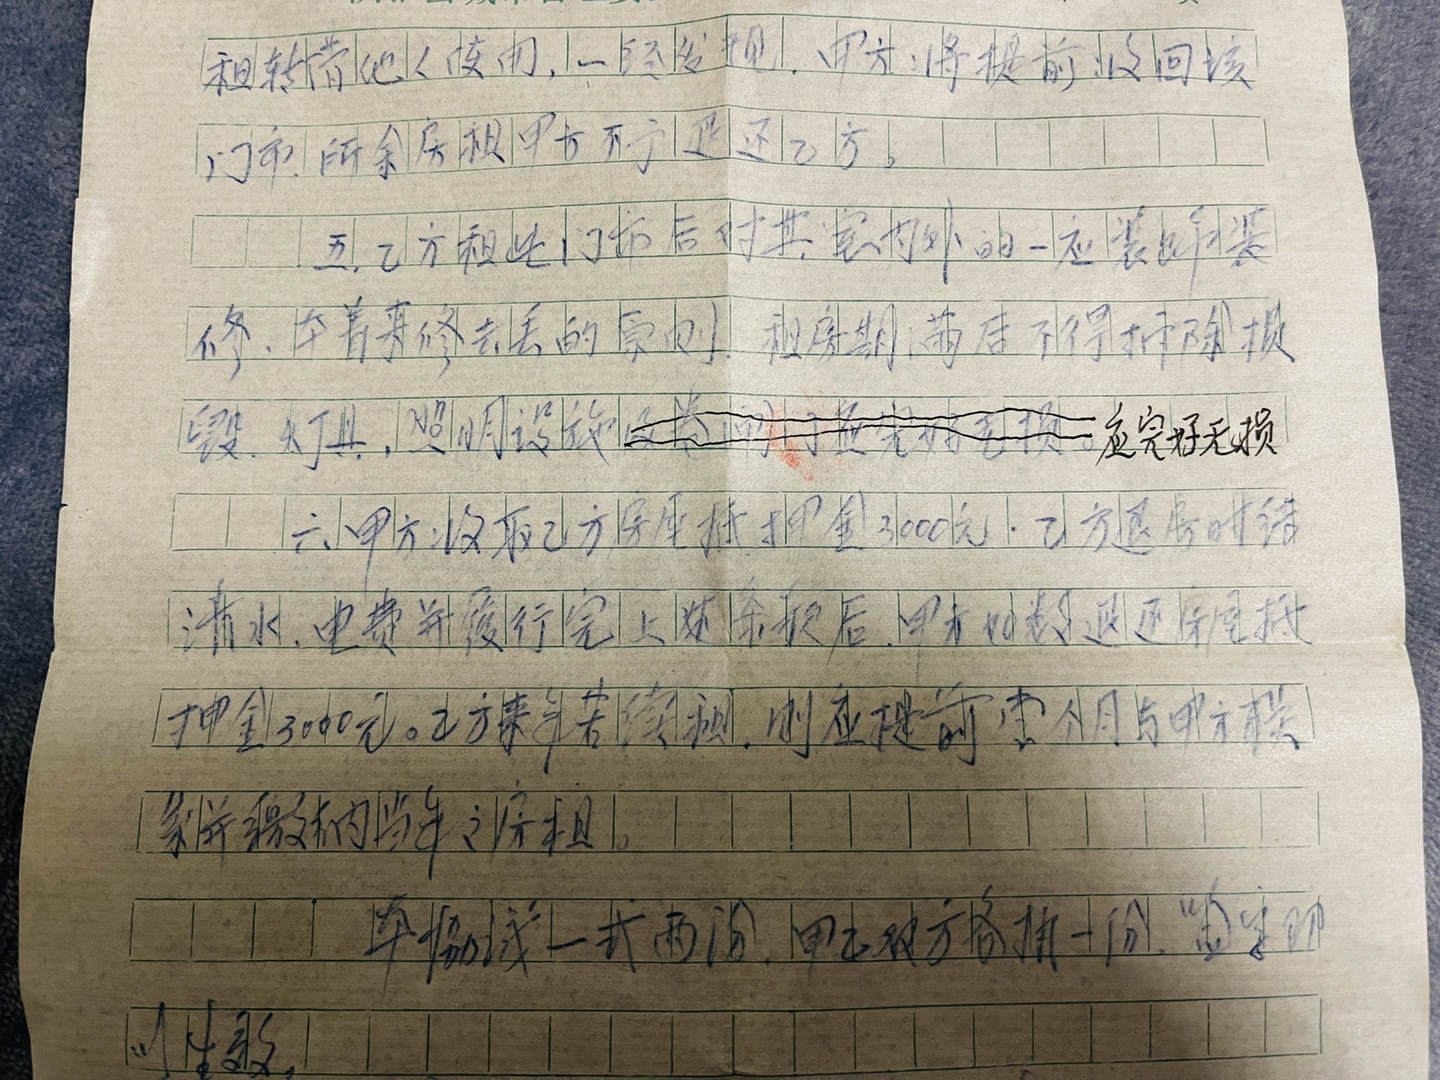 租转营他人使用，一经发现，甲方将提前收回该
门市，所余房租甲方不予退还乙方。
五、乙方租此门市后对其室内外的一应装饰装
修，本着来修去丢的原则，租房期满后不得拆除损
毁，灯具，照明设施及卷闸门应完好无损。应完好无损
六、甲方收取乙方房屋抵押金3000元，乙方退房时结
清水、电费并履行完上述条款后，甲方如数退还房屋抵
押金3000元。乙方来年若续租，则应提前壹个月与甲方联
系并缴纳当年之房租。
本协议一式两份，甲乙双方各执一份，签字即
生效。